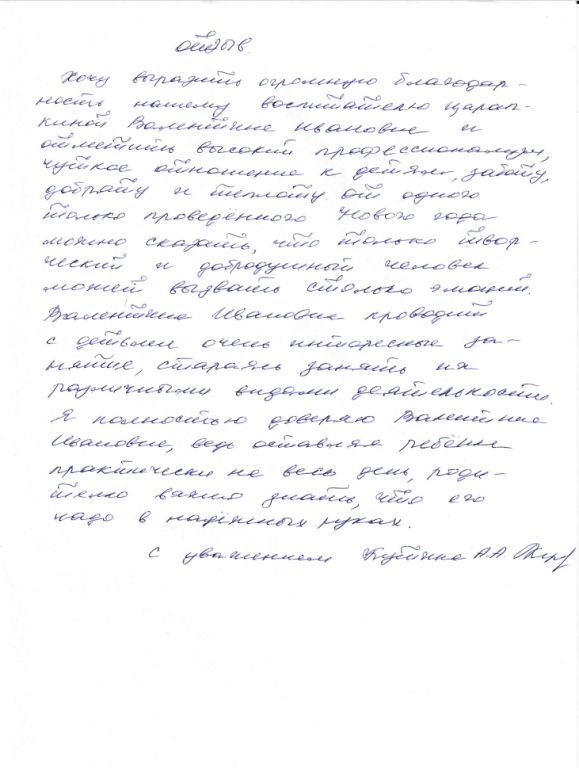 отзыв.
Хочу выразить огромную благодар-
ность нашему воспитателю Царап-
киной Валентине Ивановне и
отметить высокий профессионализм,
чуткое отношение к детям, заботу,
доброту и теплоту. От одного
только проведённого Нового года
можно сказать, что только твор-
ческий и добродушный человек
может вызвать столько эмоций.
Валентина Ивановна проводит
с детьми очень интересные за-
нятие, стараясь занять их
различными видами деятельности.
Я полностью доверяю Валентине
Ивановне, ведь оставляя ребёнка
практически на весь день, роди-
телю важно знать, что его
чадо в надёжных руках.
с уважением А.А.